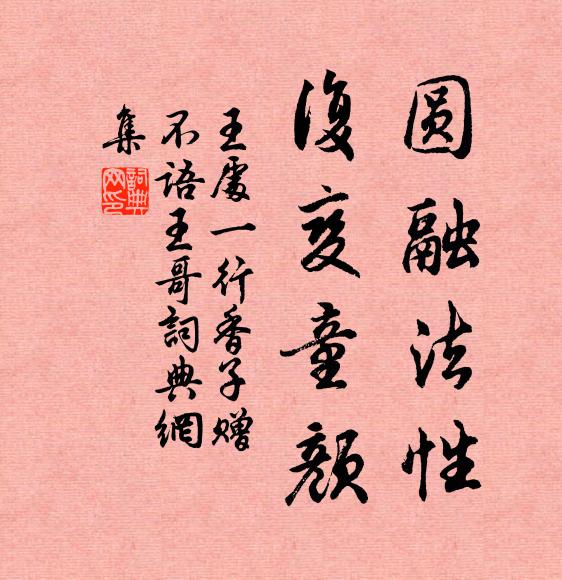 圆融法性
復变童颜
王處一行香子赠
不語王哥詞典網
集
詞典网印